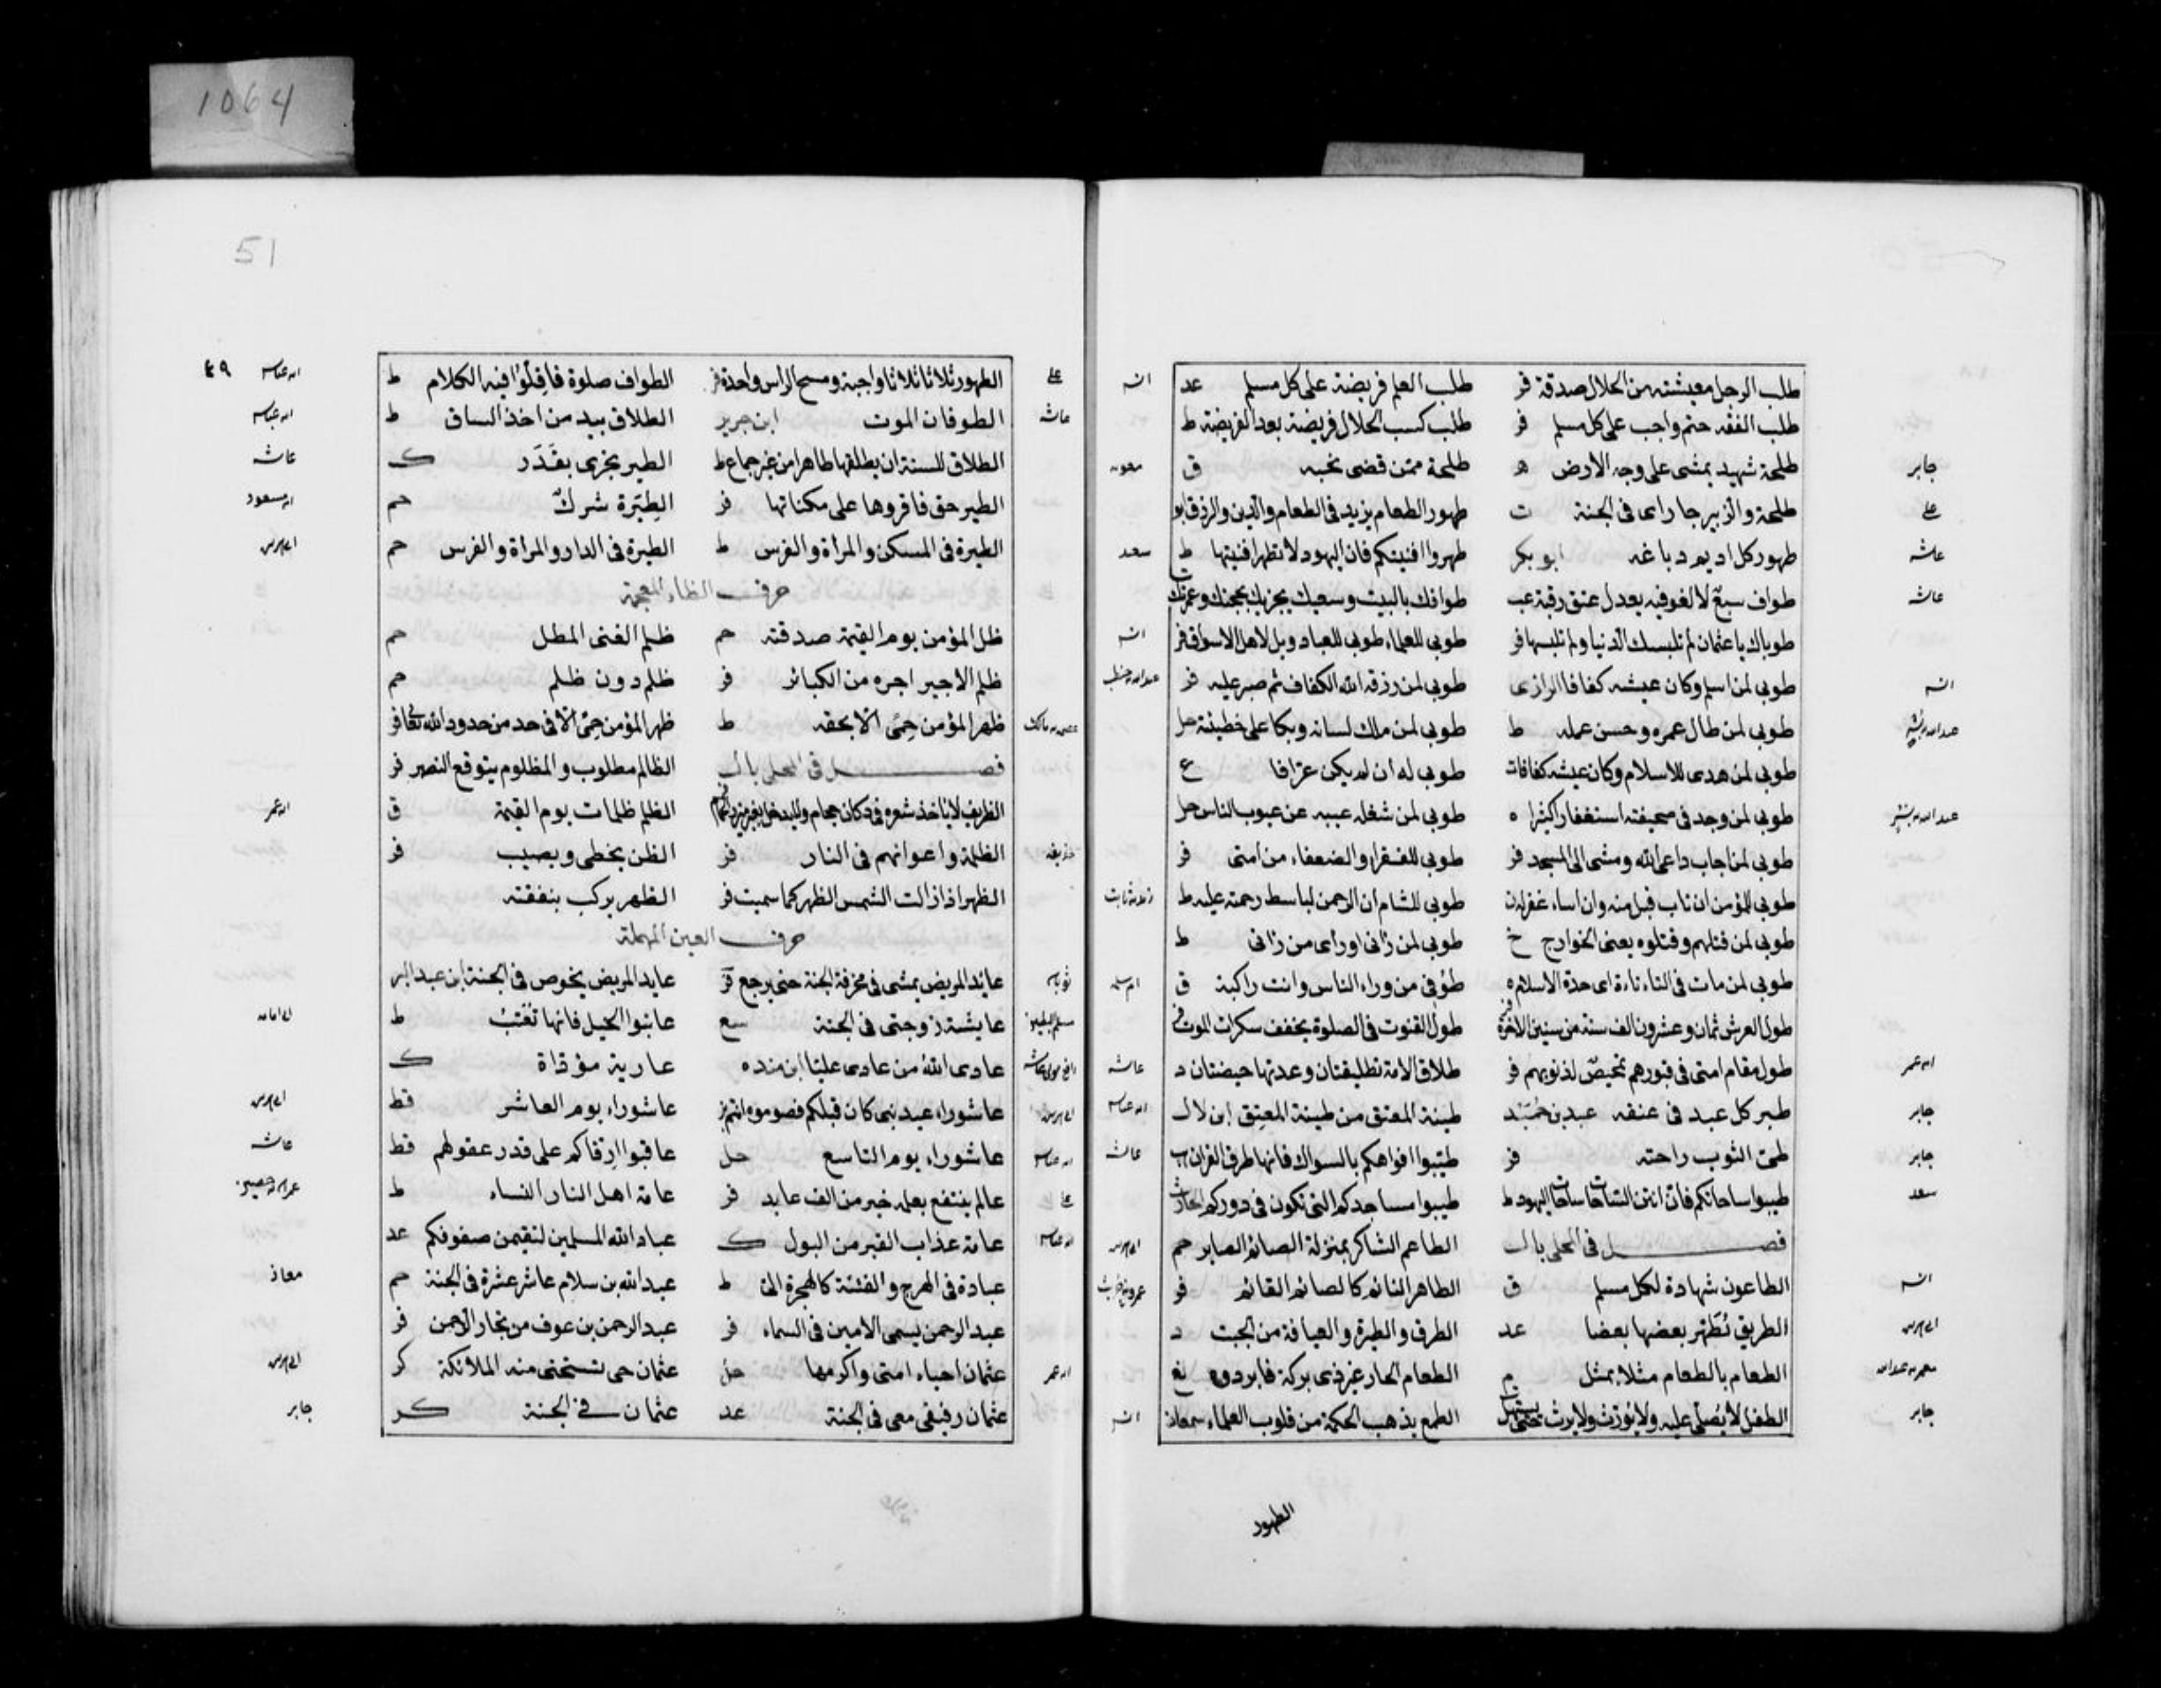 1064
51
٤٩
طلب الرجل معيشته من الحلال صدقة فر طلب العلم فريضة على كل مسلم عد انس
طلب الفقه حتم واجب على كل مسلم فر طلب كسب الحلال فريضة بعد الفريضة ط
جابر طلحة شهيد يمشى على وجه الارض ه طلحة ممن قضى نحبه ق معويه
على طلحة والزبير جاراى فى الجنة ت طهور الطعام يزيد فى الطعام والدين والرزق ابو
عائشه طهور كل اديم دباغه ابو بكر طهروا افنيتكم فان اليهود لا تطهر افنيتها ط سعد
عائشه طواف سبع لا لغو فيه يعدل عتق رقبة عب طوافك بالبيت وسعيك يجزيك بحجتك وعمرتك
طوباك يا عثمان لم تلبسك الدنيا ولم تلبسها فر طوبى للعلماء طوبى للعباد ويل لاهل الاسواق فر انس
انس طوبى لمن اسلم وكان عيشه كفافا الرازى طوبى لمن رزقه الله الكفاف ثم صبر عليه فر عبد الله بن حنطب
عبد الله بن بشر طوبى لمن طال عمره وحسن عمله ط طوبى لمن ملك لسانه وبكا على خطيئته حل
طوبى لمن هدى للاسلام وكان عيشه كفافا ت طوبى له ان لم يكن عرافا ع
عبد الله بن بشر طوبى لمن وجد فى صحيفته استغفارا كثيرا ه طوبى لمن شغله عيبه عن عيوب الناس حل
طوبى لمن اجاب داعى الله ومشى الى المسجد فر طوبى للفقراء والضعفاء من امتى فر
طوبى للمؤمن ان تاب قبل منه وان اساء غفر له ن طوبى للشام ان الرحمن لباسط رحمته عليه ط زيد بن ثابت
طوبى لمن قتلهم وقتلوه يعنى الخوارج خ طوبى لمن رانى او راى من رانى ط
طوبى لمن مات فى النانأة اى حدة الاسلام ه طوفى من وراء الناس وانت راكبة ق ام سلمه
طول العرش ثمان وعشرون الف سنة من سنين الاخرة فر طول القنوت فى الصلوة يخفف سكرات الموت فر
ابن عمر طول مقام امتى فى قبورهم تمحيص لذنوبهم فر طلاق الامة تطليقتان وعدتها حيضتان د عائشه
جابر طير كل عبد فى عنقه عبد بن حميد طينة المعتق من طينة المعتِق ابن لال ابن عباس
جابر طى الثوب راحته فر طيبوا افواهكم بالسواك فانها طرق القران عائشه
سعد طيبوا ساحاتكم فان انتن الساحات ساحات اليهود ط طيبوا مساجدكم التى تكون فى دوركم الحارث
فصل فى المحلى بال الطاعم الشاكر بمنزلة الصائم الصابر حم ابى هريره
انس الطاعون شهادة لكل مسلم ق الطاهر النائم كالصائم القائم فر عمرو بن حريث
ابى هريره الطريق تطهر بعضها بعضا عد الطرق والطيرة والعيافة من الجبت د
معمر بن عبد الله الطعام بالطعام مثلا بمثل م الطعام الحار غير ذى بركة فابردوه
جابر الطفل لا يصلى عليه ولا يورث ولا يرث حتى يستهل ت الطمع يذهب الحكمة من قلوب العلماء سمعان انس
الطهور
على الطهور ثلاثا ثلاثا واجبة ومسح الراس واحدة فر الطواف صلوة فاقلوا فيه الكلام ط ابن عباس
عائشه الطوفان الموت ابن جرير الطلاق بيد من اخذ الساق ط ابن عباس
الطلاق للسنة ان يطلقها طاهرا من غير جماع ط الطير يجرى بقدر ك عائشه
الطير حق فاقروها على مكناتها فر الطيرة شرك حم ابن مسعود
الطيرة فى المسكن والمراة والفرس ط الطيرة فى الدار والمراة والفرس حم ابى هريره
حرف الظاء المعجمة
ظل المؤمن يوم القيمة صدقته حم ظلم الغنى المطل حم
ظلم الاجير اجره من الكبائر فر ظلم دون ظلم حم
عصمه بن مالك ظهر المؤمن حمى الا بحقه ط ظهر المؤمن حمى الا فى حد من حدود الله تعا فر
فصل فى المحلى بال الظالم مطلوب والمظلوم يتوقع النصر فر
الظريف لا ياخذ شعره فى دكان حجام ولا يدخل بغير ميزر الحمام فر الظلم ظلمات يوم القيمة ق ابن عمر
حذيفه الظلمة واعوانهم فى النار فر الظن يخطى ويصيب فر
الظهر اذا زالت الشمس الظهر كما سميت فر الظهر يركب بنفقته
حرف العين المهملة
ثوبان عائد المريض يمشى فى مخرفة الجنة حتى يرجع عايد المريض يخوص فى الجنة ابن عبد البر
مسلم البطين عايشة زوجتى فى الجنة سع عاتبوا الخيل فانها تعتب ط ابى امامه
رافع مولى عائشه عادى الله من عادى عليا ابن منده عارية مؤداة ك
ابى هريره عاشوراء عيد نبى كان قبلكم فصوموه انتم بز عاشوراء يوم العاشر قط ابى هريره
ابن عباس عاشوراء يوم التاسع حل عاقبوا ارقاكم على قدر عقولهم قط عائشه
على عالم ينتفع بعلمه خير من الف عابد فر عامة اهل النار النساء ط عمران بن حصين
ابن عباس عامة عذاب القبر من البول ك عباد الله المسلمين لتقيمن صفوفكم عد
عبادة فى الهرج والفتنة كالهجرة الى ط عبد الله بن سلام عاشر عشرة فى الجنة حم معاذ
عبد الرحمن يسمى الامين فى السماء فر عبد الرحمن بن عوف من تجار الرحمن فر
ابن عمر عثمان احياء امتى واكرمها حل عثمان حى تستحى منه الملائكة كر ابى هريره
انس عثمان رفيقى معى فى الجنة عد عثمان فى الجنة كر جابر